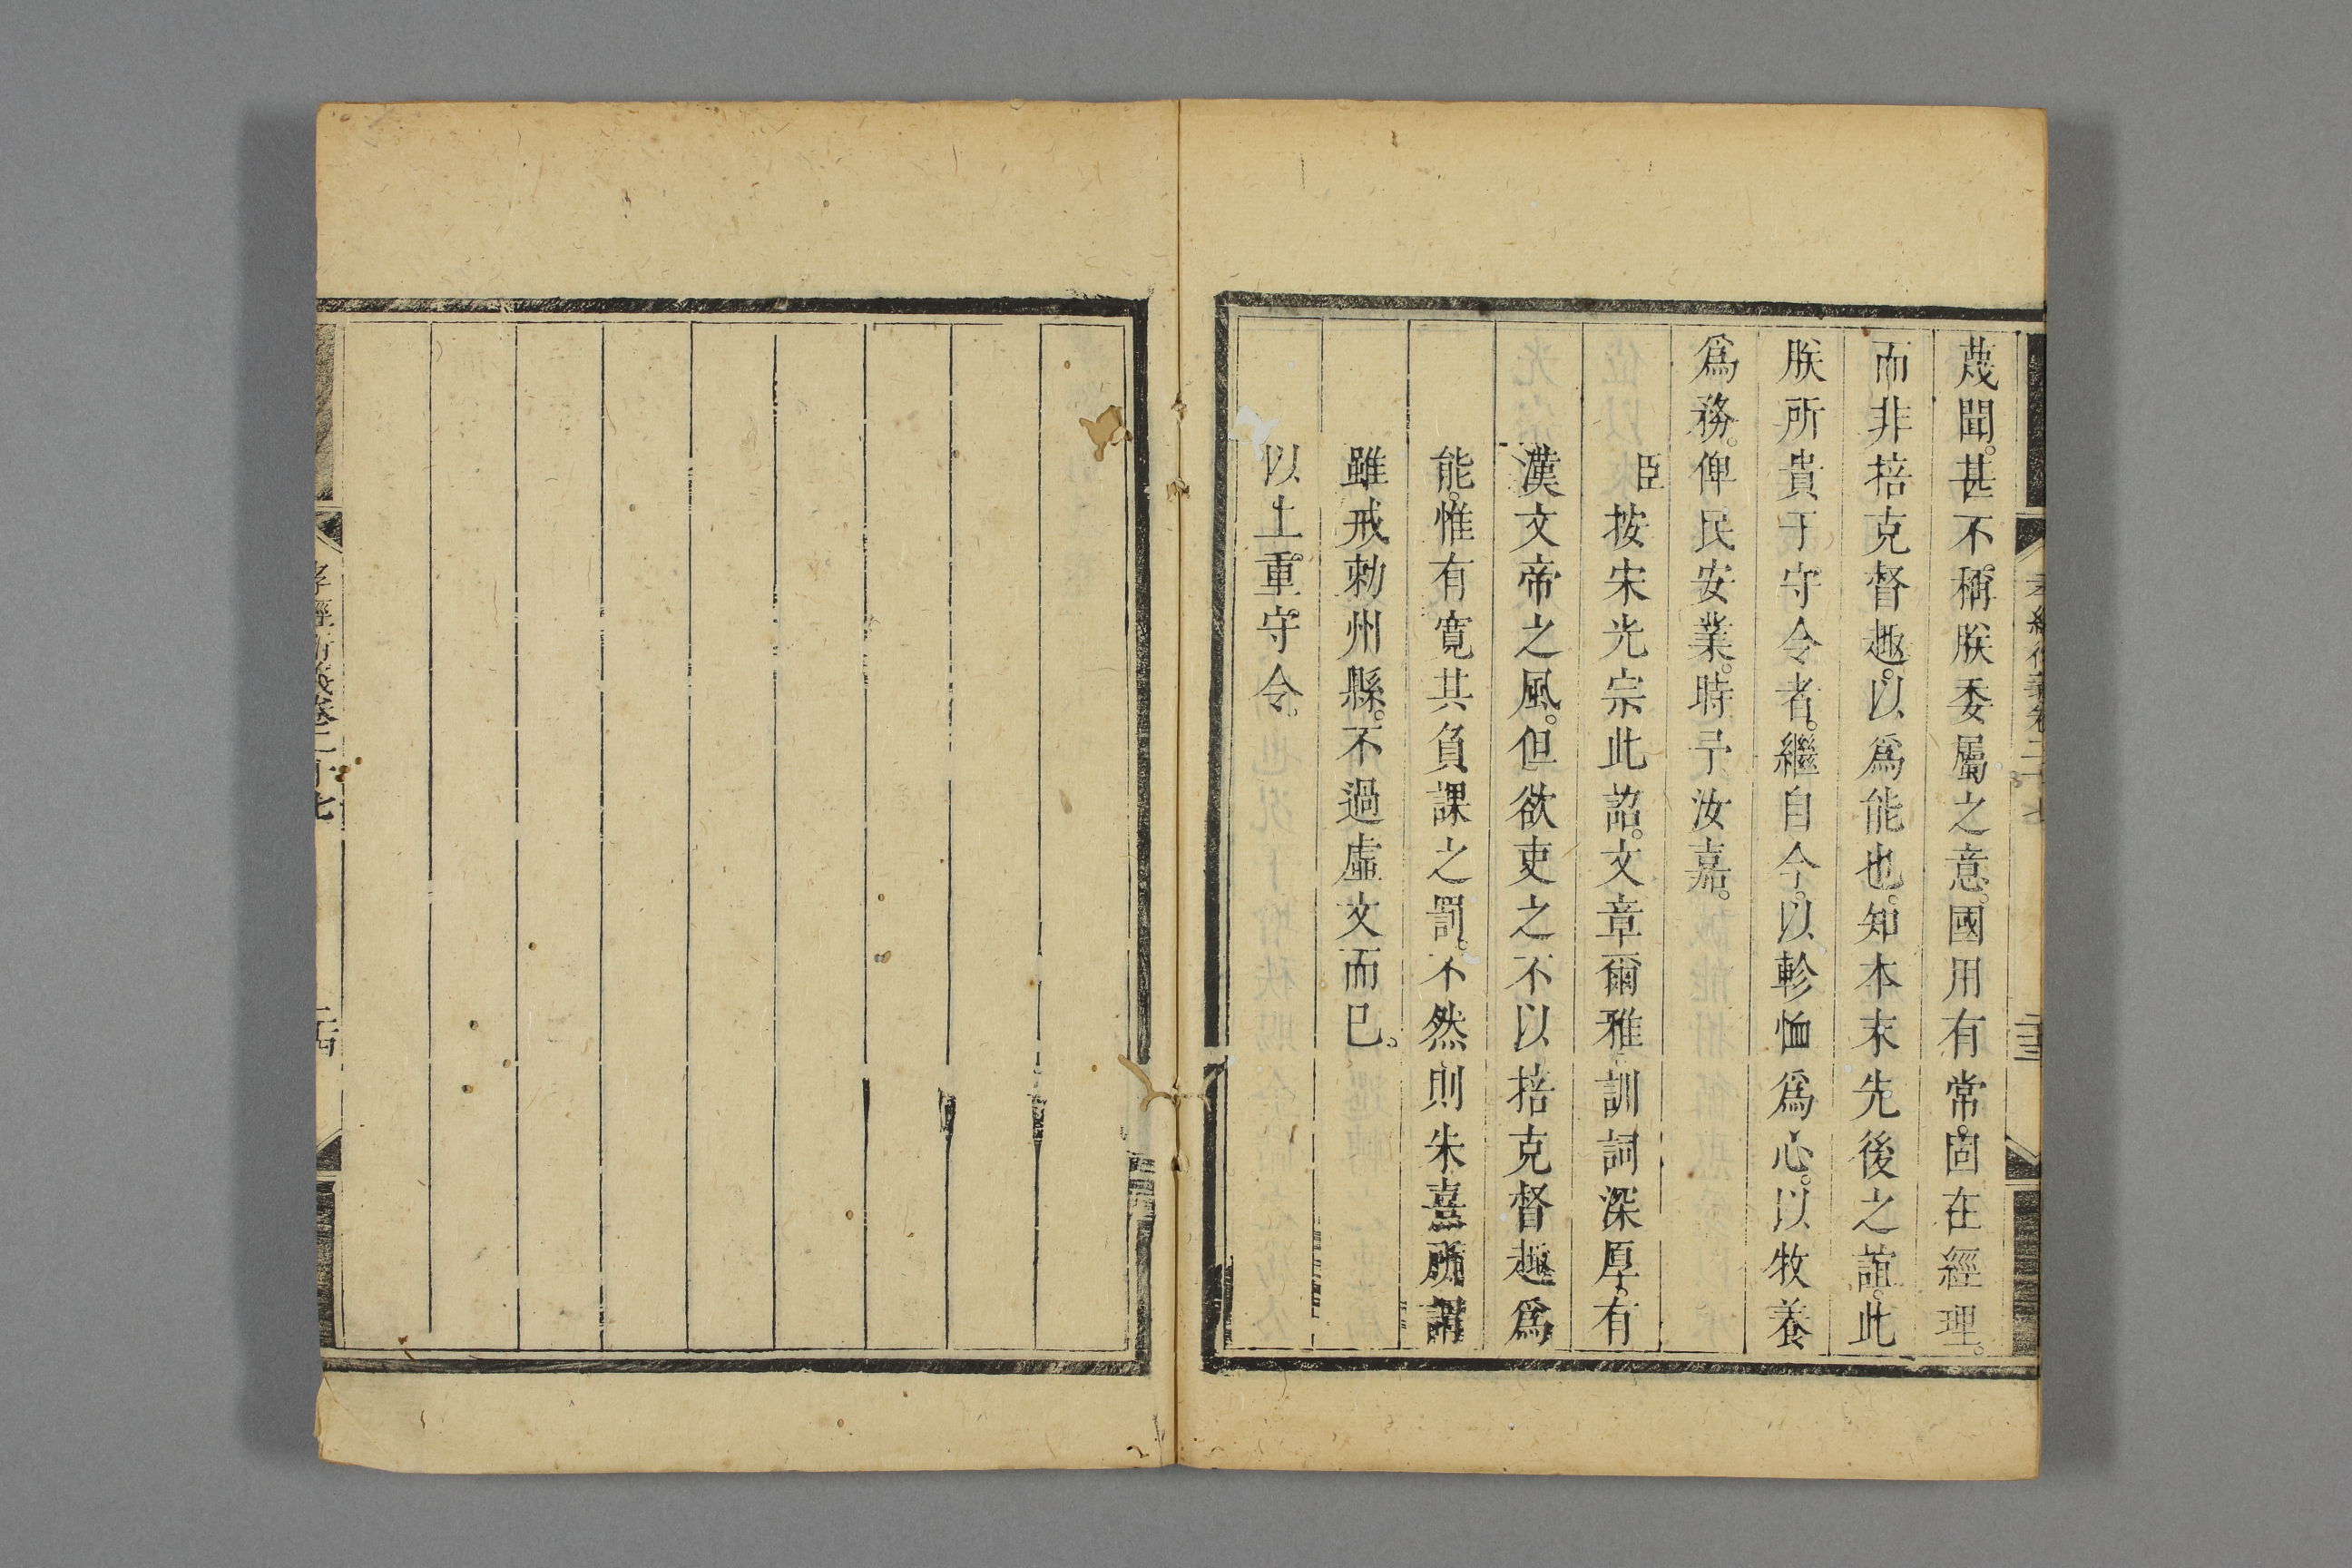 蔑聞。甚不稱朕委屬之意。國用有常。固在經理。
而非掊克督趣。以爲能也。知本末先後之誼。此
朕所貴于守令者。繼自今。以軫恤爲心。以牧養
爲務。俾民安業。時予汝嘉。
臣按宋光宗此詔。文章爾雅。訓詞深厚。有
漢文帝之風。但欲吏之不以掊克督趣爲
能。惟有寬其負課之罰。不然則朱熹所謂
雖戒勅州縣。不過虛文而已。
以上重守令。
孝經衍義卷二十七
二十三
孝經衍義卷二十七
二十四